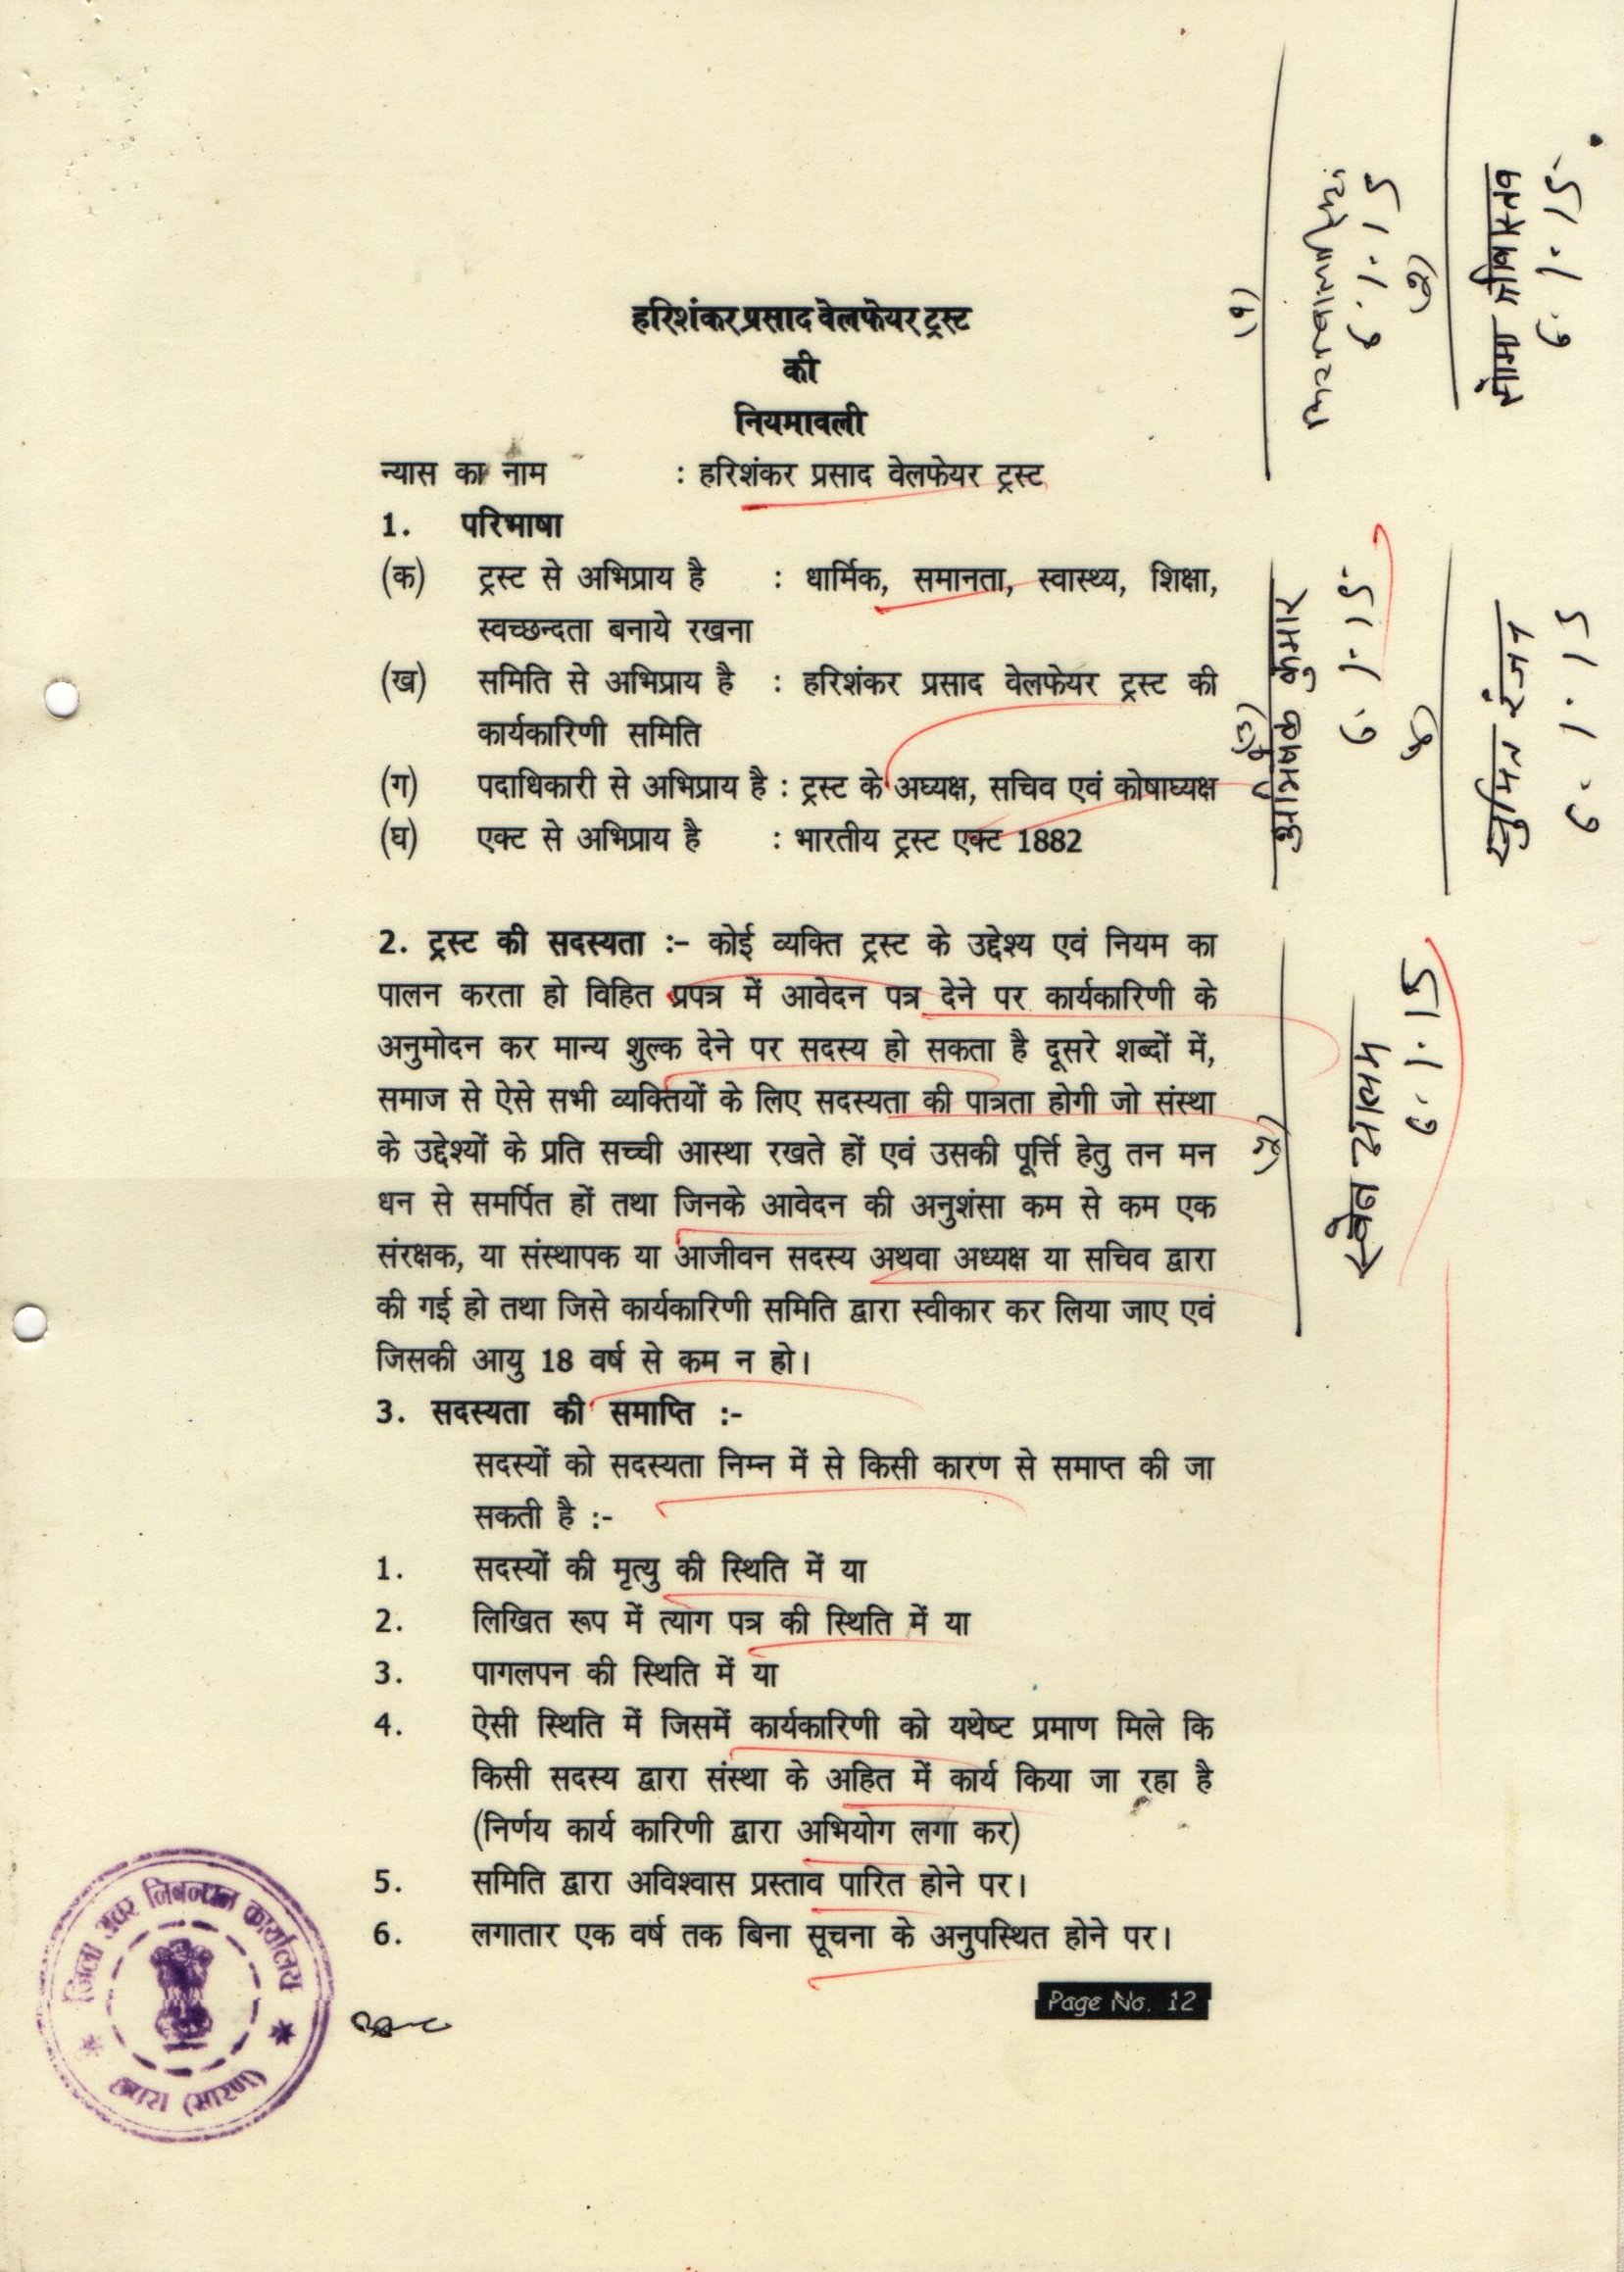 हरिशंकर प्रसाद वेलफेयर ट्रस्ट
की
नियमावली
न्यास का नाम : हरिशंकर प्रसाद वेलफेयर ट्रस्ट
1. परिभाषा
(क) ट्रस्ट से अभिप्राय है : धार्मिक, समानता, स्वास्थ्य, शिक्षा,
स्वच्छन्दता बनाये रखना
(ख) समिति से अभिप्राय है : हरिशंकर प्रसाद वेलफेयर ट्रस्ट की
कार्यकारिणी समिति
(ग) पदाधिकारी से अभिप्राय है : ट्रस्ट के अध्यक्ष, सचिव एवं कोषाध्यक्ष
(घ) एक्ट से अभिप्राय है : भारतीय ट्रस्ट एक्ट 1882
2. ट्रस्ट की सदस्यता :- कोई व्यक्ति ट्रस्ट के उद्देश्य एवं नियम का
पालन करता हो विहित प्रपत्र में आवेदन पत्र देने पर कार्यकारिणी के
अनुमोदन कर मान्य शुल्क देने पर सदस्य हो सकता है दूसरे शब्दों में,
समाज से ऐसे सभी व्यक्तियों के लिए सदस्यता की पात्रता होगी जो संस्था
के उद्देश्यों के प्रति सच्ची आस्था रखते हों एवं उसकी पूर्त्ति हेतु तन मन
धन से समर्पित हों तथा जिनके आवेदन की अनुशंसा कम से कम एक
संरक्षक, या संस्थापक या आजीवन सदस्य अथवा अध्यक्ष या सचिव द्वारा
की गई हो तथा जिसे कार्यकारिणी समिति द्वारा स्वीकार कर लिया जाए एवं
जिसकी आयु 18 वर्ष से कम न हो।
3. सदस्यता की समाप्ति :-
सदस्यों को सदस्यता निम्न में से किसी कारण से समाप्त की जा
सकती है :-
1. सदस्यों की मृत्यु की स्थिति में या
2. लिखित रूप में त्याग पत्र की स्थिति में या
3. पागलपन की स्थिति में या
4. ऐसी स्थिति में जिसमें कार्यकारिणी को यथेष्ट प्रमाण मिले कि
किसी सदस्य द्वारा संस्था के अहित में कार्य किया जा रहा है
(निर्णय कार्य कारिणी द्वारा अभियोग लगा कर)
5. समिति द्वारा अविश्वास प्रस्ताव पारित होने पर।
6. लगातार एक वर्ष तक बिना सूचना के अनुपस्थित होने पर।
Page No. 12
जिला अवर निबन्धन कार्यालय
छपरा (सारण)
(१)
6.1.15
(२)
6.1.15
(३)
अभिषेक कुमार
6.1.15
सुमित रंजन
6.1.15
आलम
6.1.15